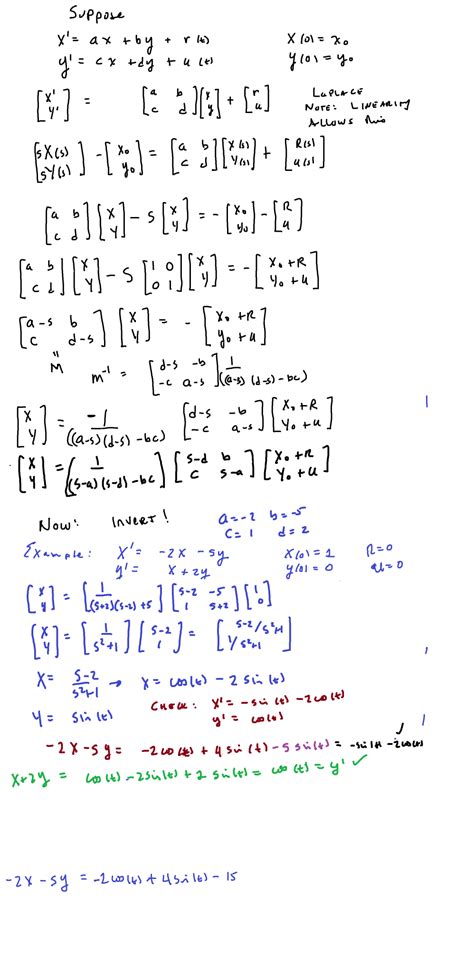 Suppose
x' = ax + by + r(t)    x(0) = x₀
y' = cx + dy + u(t)    y(0) = y₀
[x' ; y'] = [a b ; c d][x ; y] + [r ; u]    LAPLACE
NOTE: LINEARITY
ALLOWS this
[sX(s) ; sY(s)] - [x₀ ; y₀] = [a b ; c d][X(s) ; Y(s)] + [R(s) ; U(s)]
[a b ; c d][X ; Y] - s[X ; Y] = -[x₀ ; y₀] - [R ; U]
[a b ; c d][X ; Y] - s[1 0 ; 0 1][X ; Y] = -[x₀ + R ; y₀ + U]
[a-s b ; c d-s][X ; Y] = -[x₀ + R ; y₀ + U]
"
M    m⁻¹ = [d-s -b ; -c a-s] 1/((a-s)(d-s) - bc)
[X ; Y] = -1/((a-s)(d-s) - bc) [d-s -b ; -c a-s][x₀ + R ; y₀ + U]
[X ; Y] = (1/((s-a)(s-d) - bc)) [s-d b ; c s-a][x₀ + R ; y₀ + U]
Now: INVERT!    a = -2 b = -5
c = 1 d = 2
Example: x' = -2x - 5y    x(0) = 1    R = 0
y' = x + 2y    y(0) = 0    U = 0
[X ; Y] = [1/((s+2)(s-2) + 5)] [s-2 -5 ; 1 s+2][1 ; 0]
[X ; Y] = [1/(s²+1)] [s-2 ; 1] = [s-2/s²+1 ; 1/s²+1]
X = (s-2)/(s²+1) → x = cos(t) - 2 sin(t)
Y = sin(t)    CHECK: x' = -sin(t) - 2cos(t)
y' = cos(t)
-2x - 5y = -2cos(t) + 4 sin(t) - 5 sin(t) = -sin(t) - 2cos(t) ✓
x + 2y = cos(t) - 2 sin(t) + 2 sin(t) = cos(t) = y' ✓
-2x - 5y = -2cos(t) + 4 sin(t) - 15